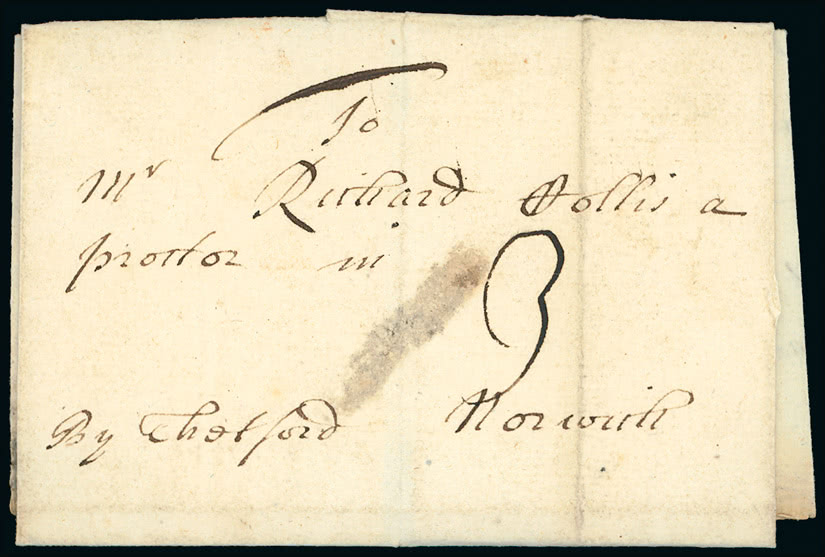 To
Mr Richard Hollis a
proctor in
3
By Thetford Norwich